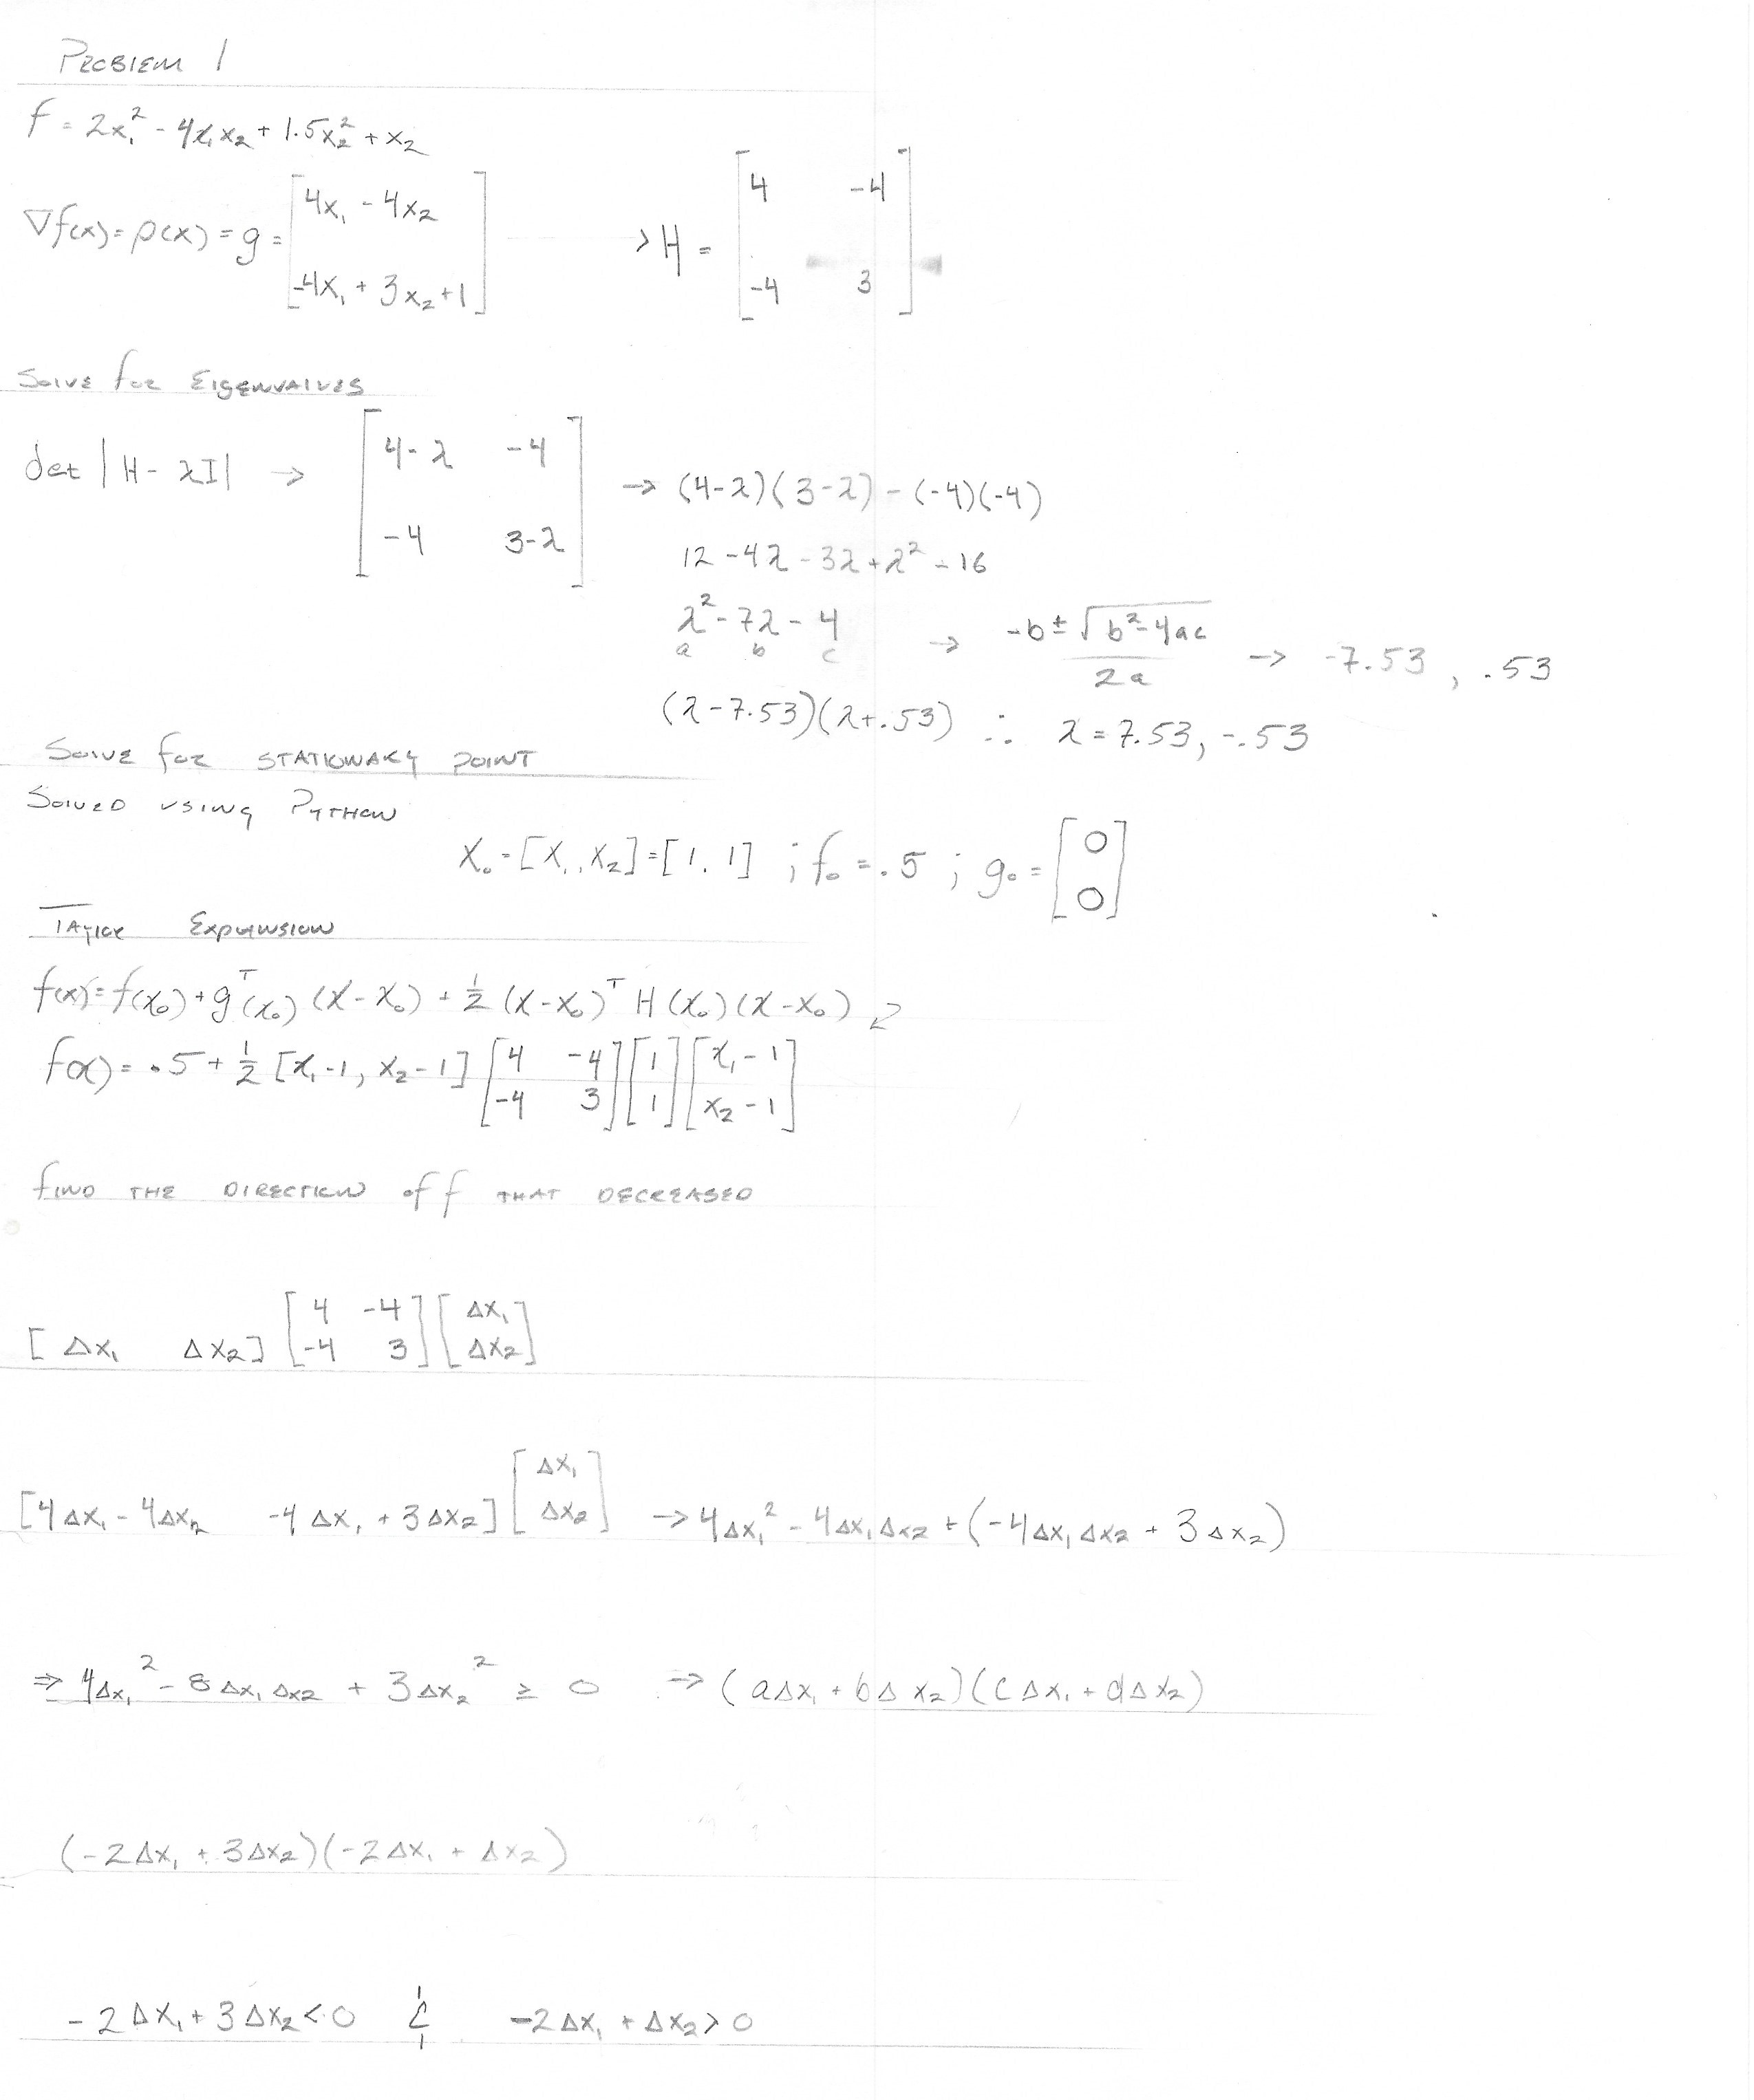 PROBLEM 1
f = 2x₁² - 4x₁x₂ + 1.5x₂² + x₂
∇f(x) = ρ(x) = g = [4x₁ - 4x₂; -4x₁ + 3x₂ + 1] → H = [4 -4; -4 3]
SOLVE FOR EIGENVALUES
det |H - λI| → [4-λ -4; -4 3-λ] → (4-λ)(3-λ) - (-4)(-4)
12 - 4λ - 3λ + λ² - 16
λ² - 7λ - 4 → -b ± √(b² - 4ac) / 2a → -7.53, .53
a b c
(λ - 7.53)(λ + .53) ∴ λ = 7.53, -.53
SOLVE FOR STATIONARY POINT
SOLVED USING PYTHON
X₀ = [X₁, X₂] = [1, 1] ; f₀ = .5 ; g₀ = [0; 0]
TAYLOR EXPANSION
f(x) = f(x₀) + gᵀ(x₀) (x - x₀) + ½ (x - x₀)ᵀ H (x₀) (x - x₀)
f(x) = .5 + ½ [x₁ - 1, x₂ - 1] [4 -4; -4 3] [1; 1] [x₁ - 1; x₂ - 1]
FIND THE DIRECTION OF f THAT DECREASED
[Δx₁ Δx₂] [4 -4; -4 3] [Δx₁; Δx₂]
[4Δx₁ - 4Δx₂ -4Δx₁ + 3Δx₂] [Δx₁; Δx₂] → 4Δx₁² - 4Δx₁Δx₂ + (-4Δx₁Δx₂ + 3Δx₂)
⇒ 4Δx₁² - 8Δx₁Δx₂ + 3Δx₂² ≥ 0 → (aΔx₁ + bΔx₂)(cΔx₁ + dΔx₂)
(-2Δx₁ + 3Δx₂)(-2Δx₁ + Δx₂)
-2Δx₁ + 3Δx₂ < 0 & -2Δx₁ + Δx₂ > 0